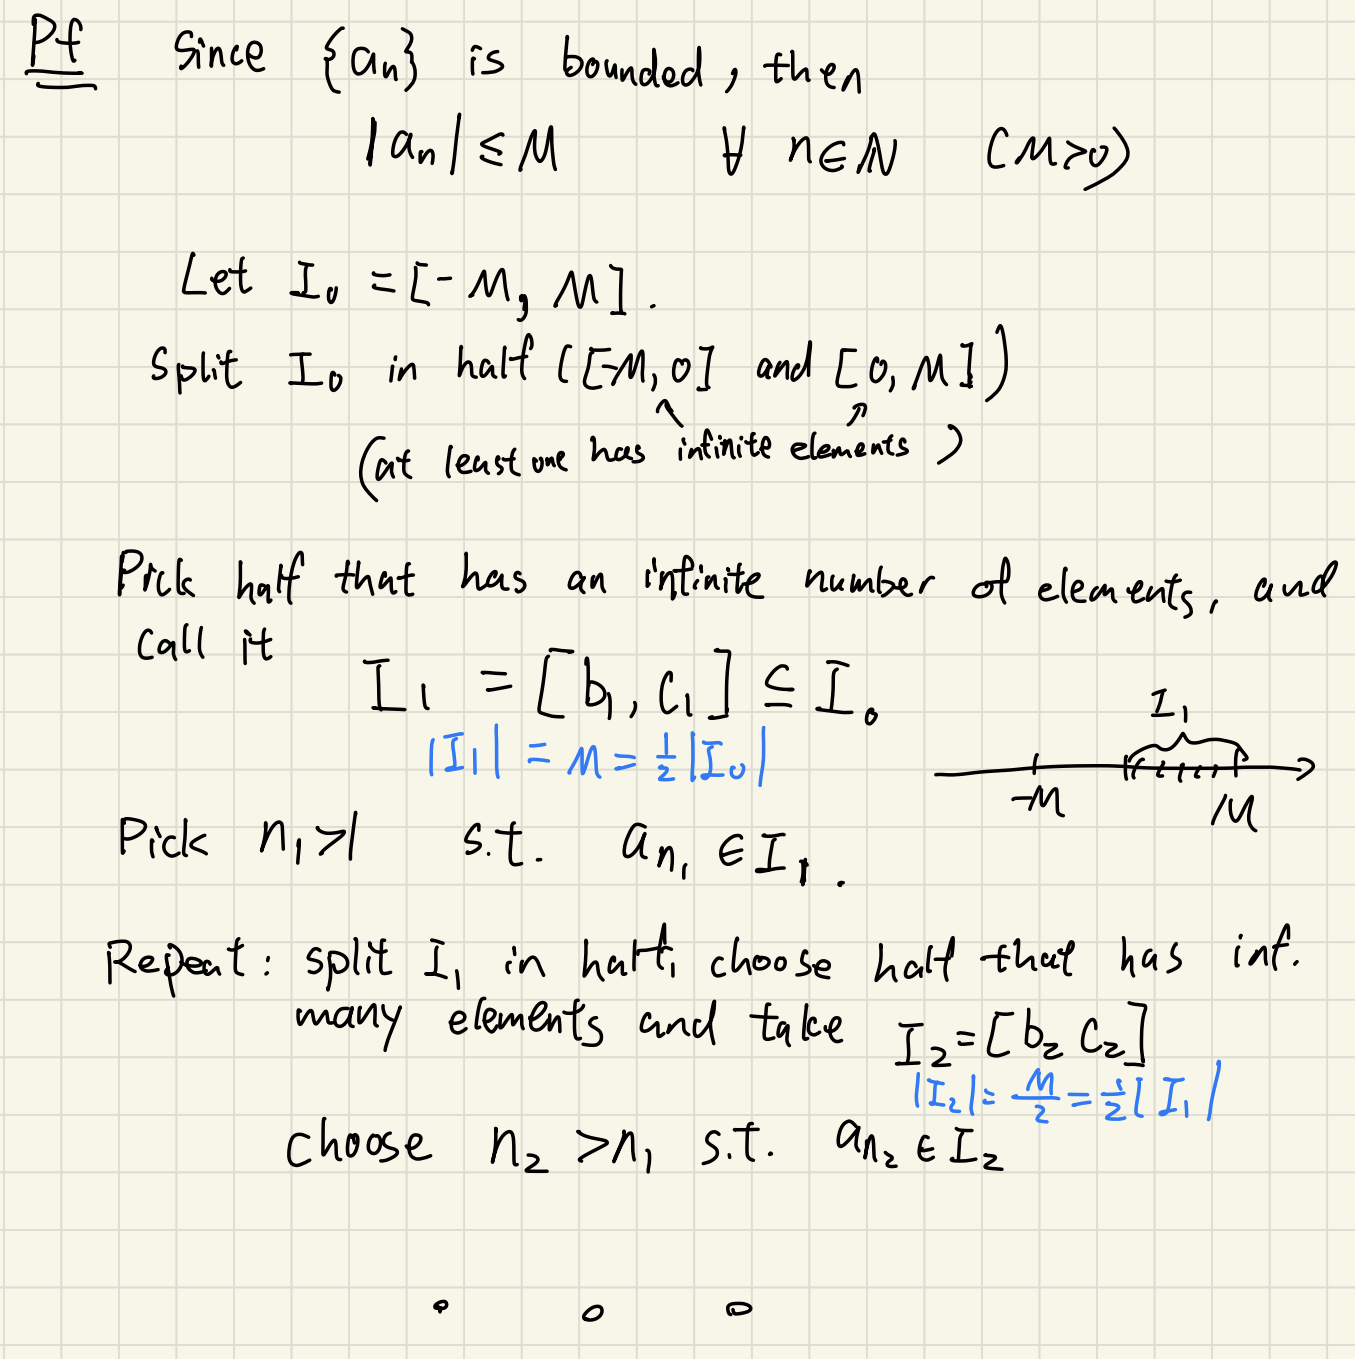 Pf Since {aₙ} is bounded, then
|aₙ| ≤ M ∀ n∈ℕ (M>0)
Let I₀ = [-M, M].
Split I₀ in half ([-M, 0] and [0, M])
(at least one has infinite elements)
Pick half that has an infinite number of elements, and
call it
I₁ = [b₁, c₁] ⊆ I₀
|I₁| = M = ½|I₀|
I₁
-M M
Pick n₁>1 s.t. aₙ₁ ∈ I₁.
Repeat: split I₁ in half, choose half that has inf.
many elements and take I₂=[b₂ c₂]
|I₂| = M/2 = ½|I₁|
choose n₂ >n₁ s.t. aₙ₂ ∈ I₂
. . .